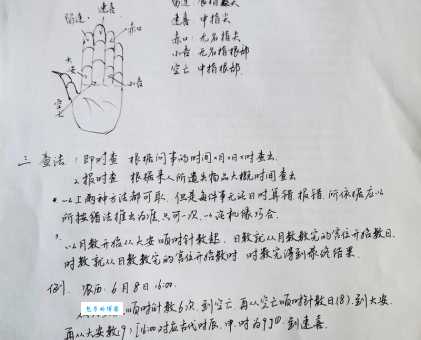 留连
速喜
赤口
大安
小吉
空亡
速喜 中指尖
赤口 无名指尖
小吉 无名指根部
空亡 中指根部
三 查法：1.即时查 根据问事的时间、月、日、时查出.
2.报时查 根据来人所遗失物品大概时间查出
*以上两种方法都可取，但是每件事无论日时算错、报错，所依据应以
所按错法推出为准，只可一次，一次机缘巧合.
以月数开始从大安顺时针数起，日数就从月数数完的宫位开始数日，
时数就从日数数完的宫位开始数时 时数完得到最终结果.
例. 农历：6月8日16:00.
顺时针数6次，到空亡 再从空亡顺时针数日(8)，到大安.
再从大安数9，[16:00对应古代时辰，申时为9]时，到速喜.